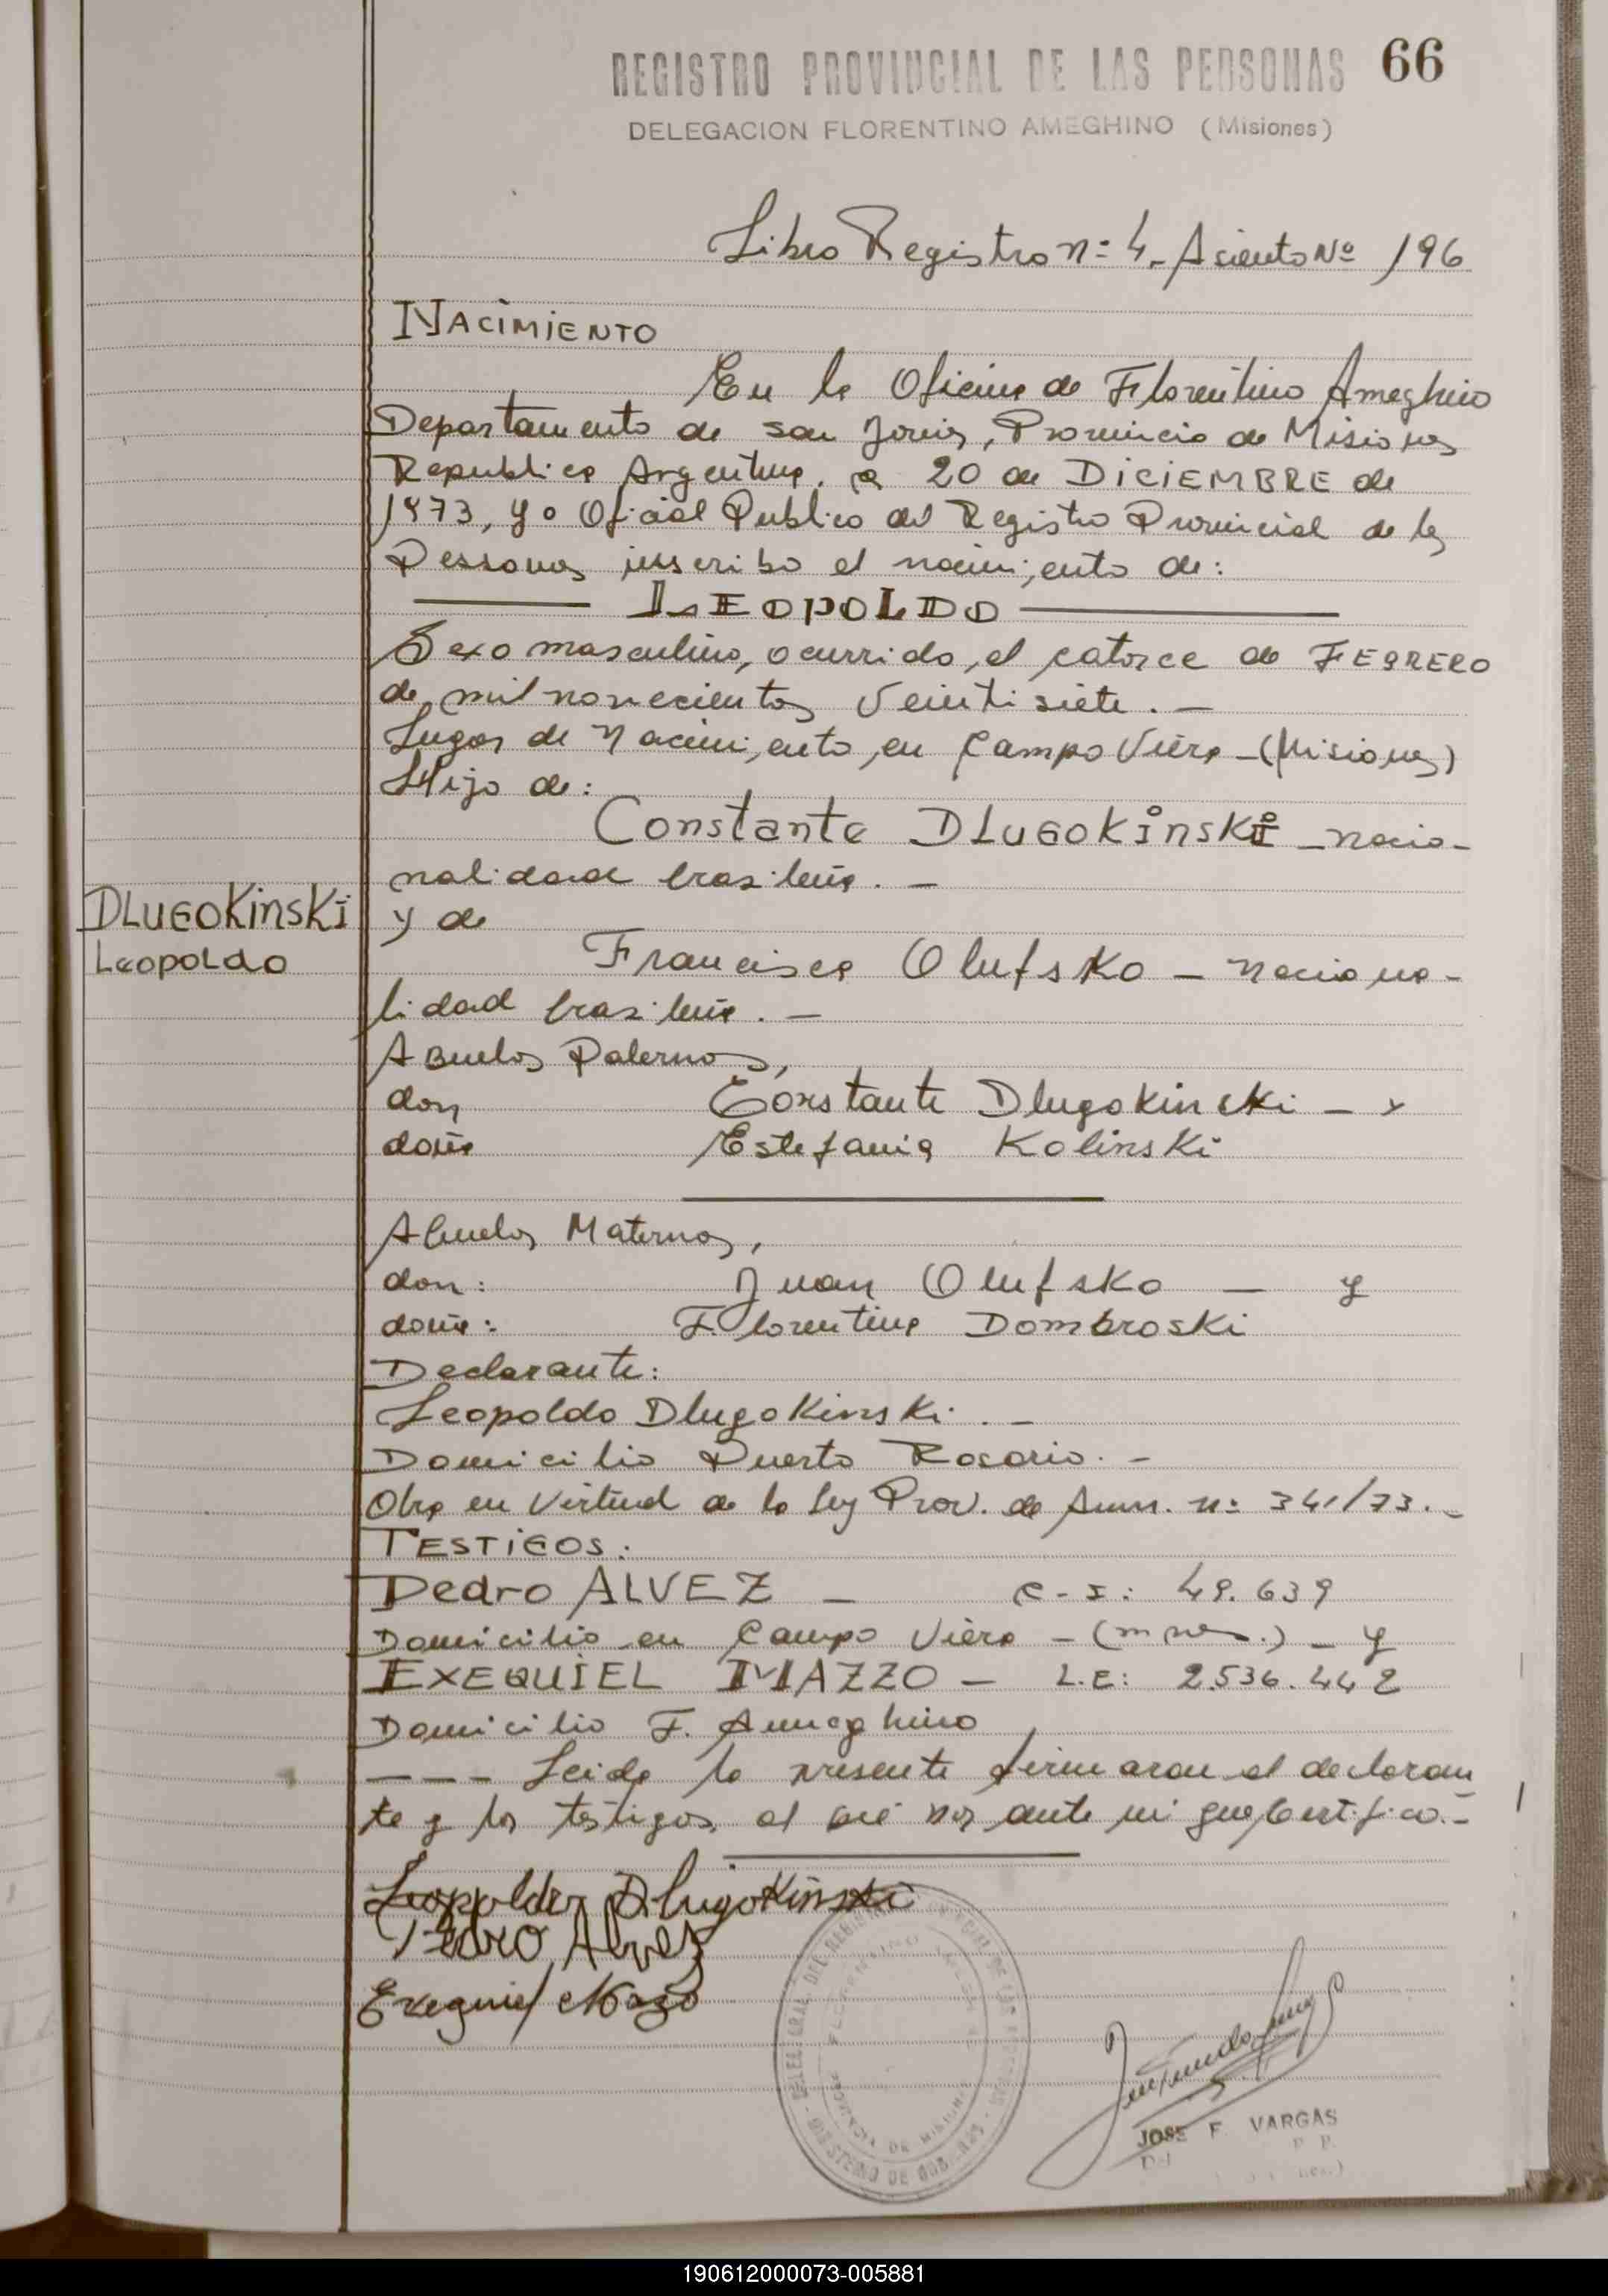 REGISTRO PROVINCIAL DE LAS PERSONAS 66
DELEGACION FLORENTINO AMEGHINO (Misiones)
Libro Registro nº 4.- Asiento Nº 196
NACIMIENTO
En la Oficina de Florentino Ameghino
Departamento de San Javier, Provincia de Misiones
Republica Argentina, a 20 de DICIEMBRE de
1973, yo Oficial Publico del Registro Provincial de las
Personas inscribo el nacimiento de:
LEOPOLDO
Sexo masculino, ocurrido, el catorce de FEBRERO
de mil novecientos veintisiete. -
Lugar de Nacimiento, en Campo Viera - (Misiones)
Hijo de:
Constante DLUGOKINSKI - nacio-
nalidad brasileña. -
DLUGOKINSKI
Leopoldo
y de
Francisca Olufsko - naciona-
lidad brasileña. -
Abuelos Paternos,
don Constante Dlugokinski - y
doña Estefania Kolinski
Abuelos Maternos,
don: Juan Olufsko - y
doña: Florentina Dombroski
Declarante:
Leopoldo Dlugokinski. -
Domicilio Puerto Rosario. -
Obra en Virtud de la Ley Prov. de Amn. nº 341/73. -
TESTIGOS:
Pedro ALVEZ - C-I: 49.639
Domicilio en Campo Viera - (mnes.) - y
EXEQUIEL MAZZO - L.E: 2.536.442
Domicilio F. Ameghino
--- Leida la presente firmaron el declaran
te y los testigos al pie por ante mi que Certifico.-
Leopoldo Dlugokinski
Pedro Alvez
Exequiel Mazo
PROVINCIA DE MISIONES
JOSE F. VARGAS
190612000073-005881